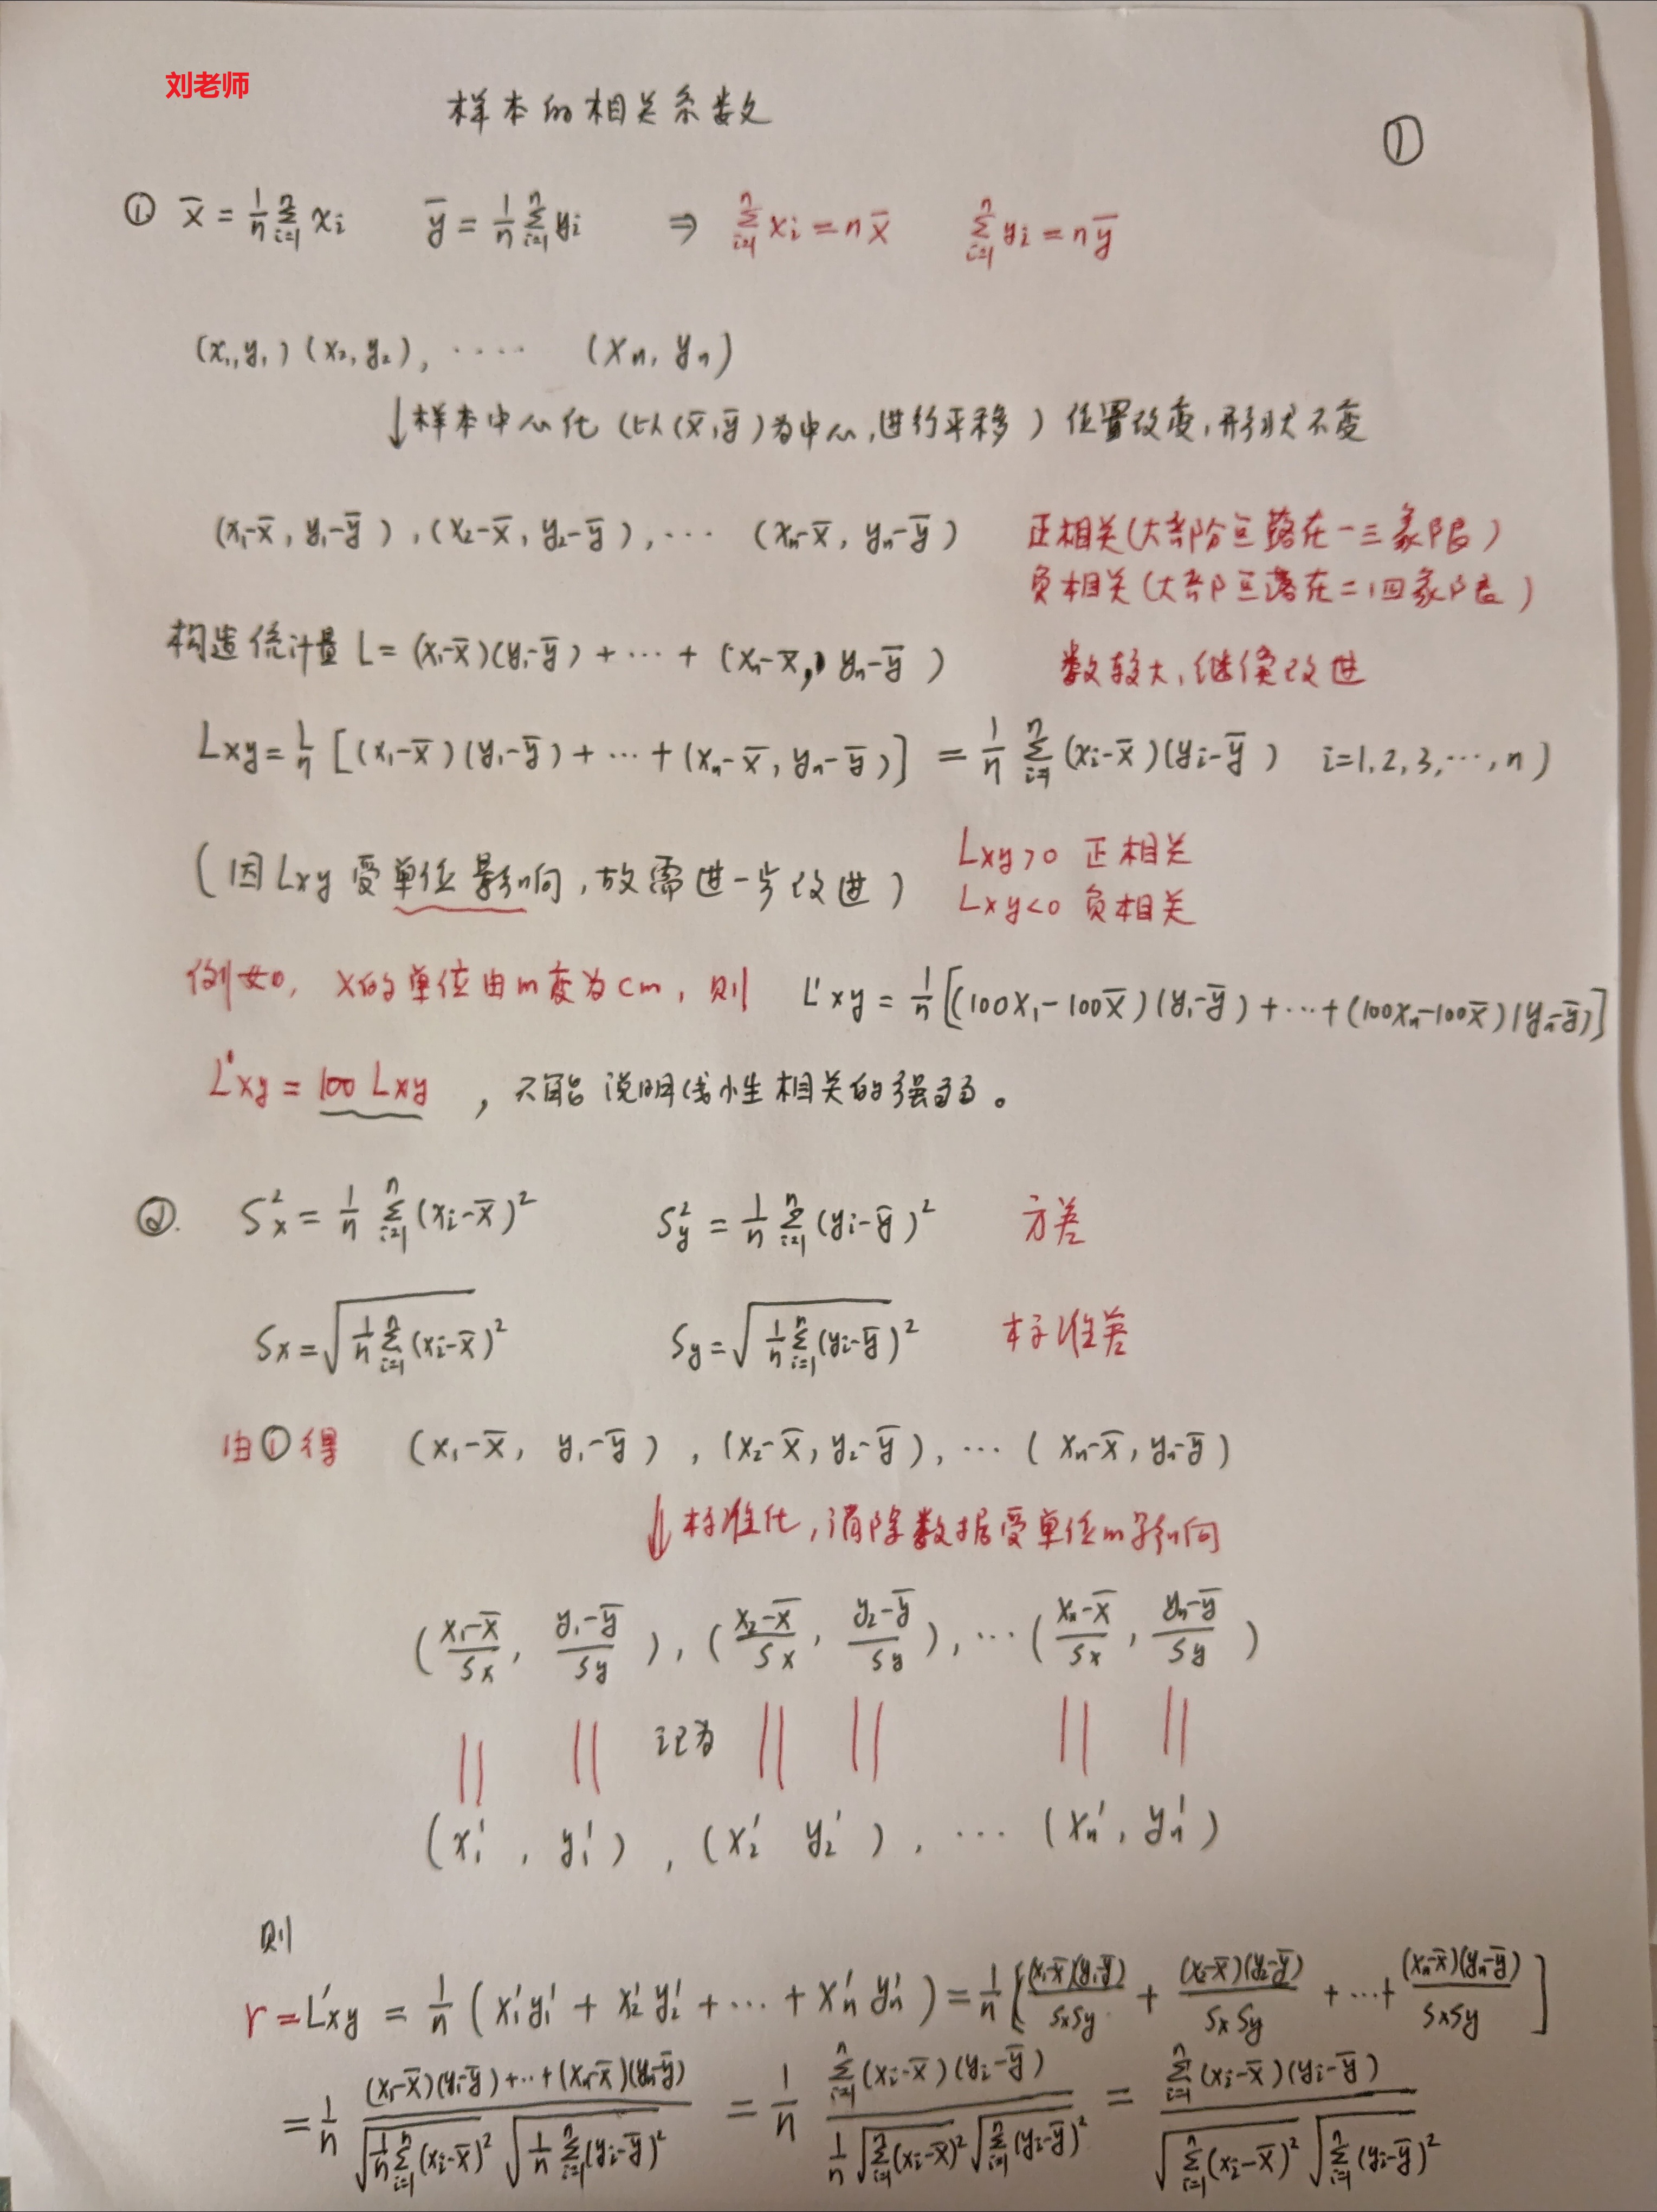 刘老师
样本的相关系数
①
① x̄ = 1/n Σ_{i=1}^{n} xi  ȳ = 1/n Σ_{i=1}^{n} yi ⇒ Σ_{i=1}^{n} xi = n x̄  Σ_{i=1}^{n} yi = n ȳ
(x₁,y₁) (x₂,y₂), ···· (xn, yn)
↓样本中心化 (以(x̄,ȳ)为中心,进行平移) 位置改变,形状不变
(x₁-x̄, y₁-ȳ), (x₂-x̄, y₂-ȳ), ··· (xn-x̄, yn-ȳ) 正相关(大部分点落在一三象限)
负相关(大部点落在二,四象限)
构造统计量 L = (x₁-x̄)(y₁-ȳ) + ··· + (xn-x̄, yn-ȳ) 数较大,继续改进
Lxy = 1/n [(x₁-x̄)(y₁-ȳ) + ··· + (xn-x̄, yn-ȳ)] = 1/n Σ_{i=1}^{n} (xi-x̄)(yi-ȳ) i=1,2,3,···,n)
(因Lxy受单位影响,故需进一步改进) Lxy>0 正相关
Lxy<0 负相关
例如, x的单位由m变为cm, 则 L'xy = 1/n [(100x₁-100x̄)(y₁-ȳ) + ··· + (100xn-100x̄)(yn-ȳ)]
L'xy = 100 Lxy , 不能说明线性相关的强弱。
②. S²x = 1/n Σ_{i=1}^{n} (xi-x̄)²  S²y = 1/n Σ_{i=1}^{n} (yi-ȳ)² 方差
Sx = √(1/n Σ_{i=1}^{n} (xi-x̄)²)  Sy = √(1/n Σ_{i=1}^{n} (yi-ȳ)²) 标准差
由①得 (x₁-x̄, y₁-ȳ), (x₂-x̄, y₂-ȳ), ··· (xn-x̄, yn-ȳ)
⇓标准化,消除数据受单位m影响
((x₁-x̄)/Sx, (y₁-ȳ)/Sy), ((x₂-x̄)/Sx, (y₂-ȳ)/Sy), ··· ((xn-x̄)/Sx, (yn-ȳ)/Sy)
|| || 记为 || || || ||
(x₁', y₁'), (x₂' y₂'), ··· (xn', yn')
则
r = L'xy = 1/n (x₁'y₁' + x₂'y₂' + ··· + xn'yn') = 1/n [(x₁-x̄)(y₁-ȳ)/SxSy + (x₂-x̄)(y₂-ȳ)/SxSy + ··· + (xn-x̄)(yn-ȳ)/SxSy]
= 1/n ((x₁-x̄)(y₁-ȳ) + ··· + (xn-x̄)(yn-ȳ)) / (√(1/n Σ_{i=1}^{n} (xi-x̄)²) √(1/n Σ_{i=1}^{n} (yi-ȳ)²)) = 1/n (Σ_{i=1}^{n} (xi-x̄)(yi-ȳ)) / (1/n √(Σ_{i=1}^{n} (xi-x̄)²) √(Σ_{i=1}^{n} (yi-ȳ)²)) = (Σ_{i=1}^{n} (xi-x̄)(yi-ȳ)) / (√(Σ_{i=1}^{n} (xi-x̄)²) √(Σ_{i=1}^{n} (yi-ȳ)²))